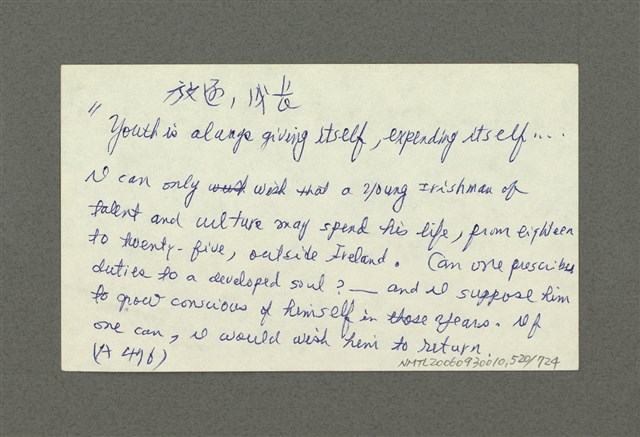 放逐，成長
"Youth is always giving itself, expending itself....
I can only wish that a young Irishman of
talent and culture may spend his life, from eighteen
to twenty-five, outside Ireland. Can one prescribe
duties to a developed soul? — and I suppose him
to grow conscious of himself in those years. If
one can, I would wish him to return.
(A 476)
NMTL20060930010,520/724